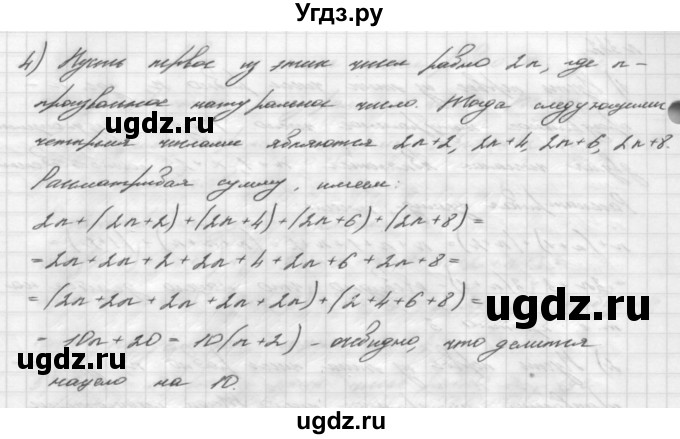 Угдз.ру
4) Пусть первое из этих чисел равно 2n, где n -
произвольное натуральное число. Тогда следующими
четырьмя числами являются 2n+2, 2n+4, 2n+6, 2n+8.
Рассматривая сумму, имеем:
2n+(2n+2)+(2n+4)+(2n+6)+(2n+8)=
=2n+2n+2+2n+4+2n+6+2n+8=
=(2n+2n+2n+2n+2n)+(2+4+6+8)=
= 10n+20 = 10(n+2) - очевидно, что делится
нацело на 10.
ugdz.ru
ugdz.ru
ugdz.ru
ugdz.ru
ugdz.ru
ugdz.ru
ugdz.ru
ugdz.ru